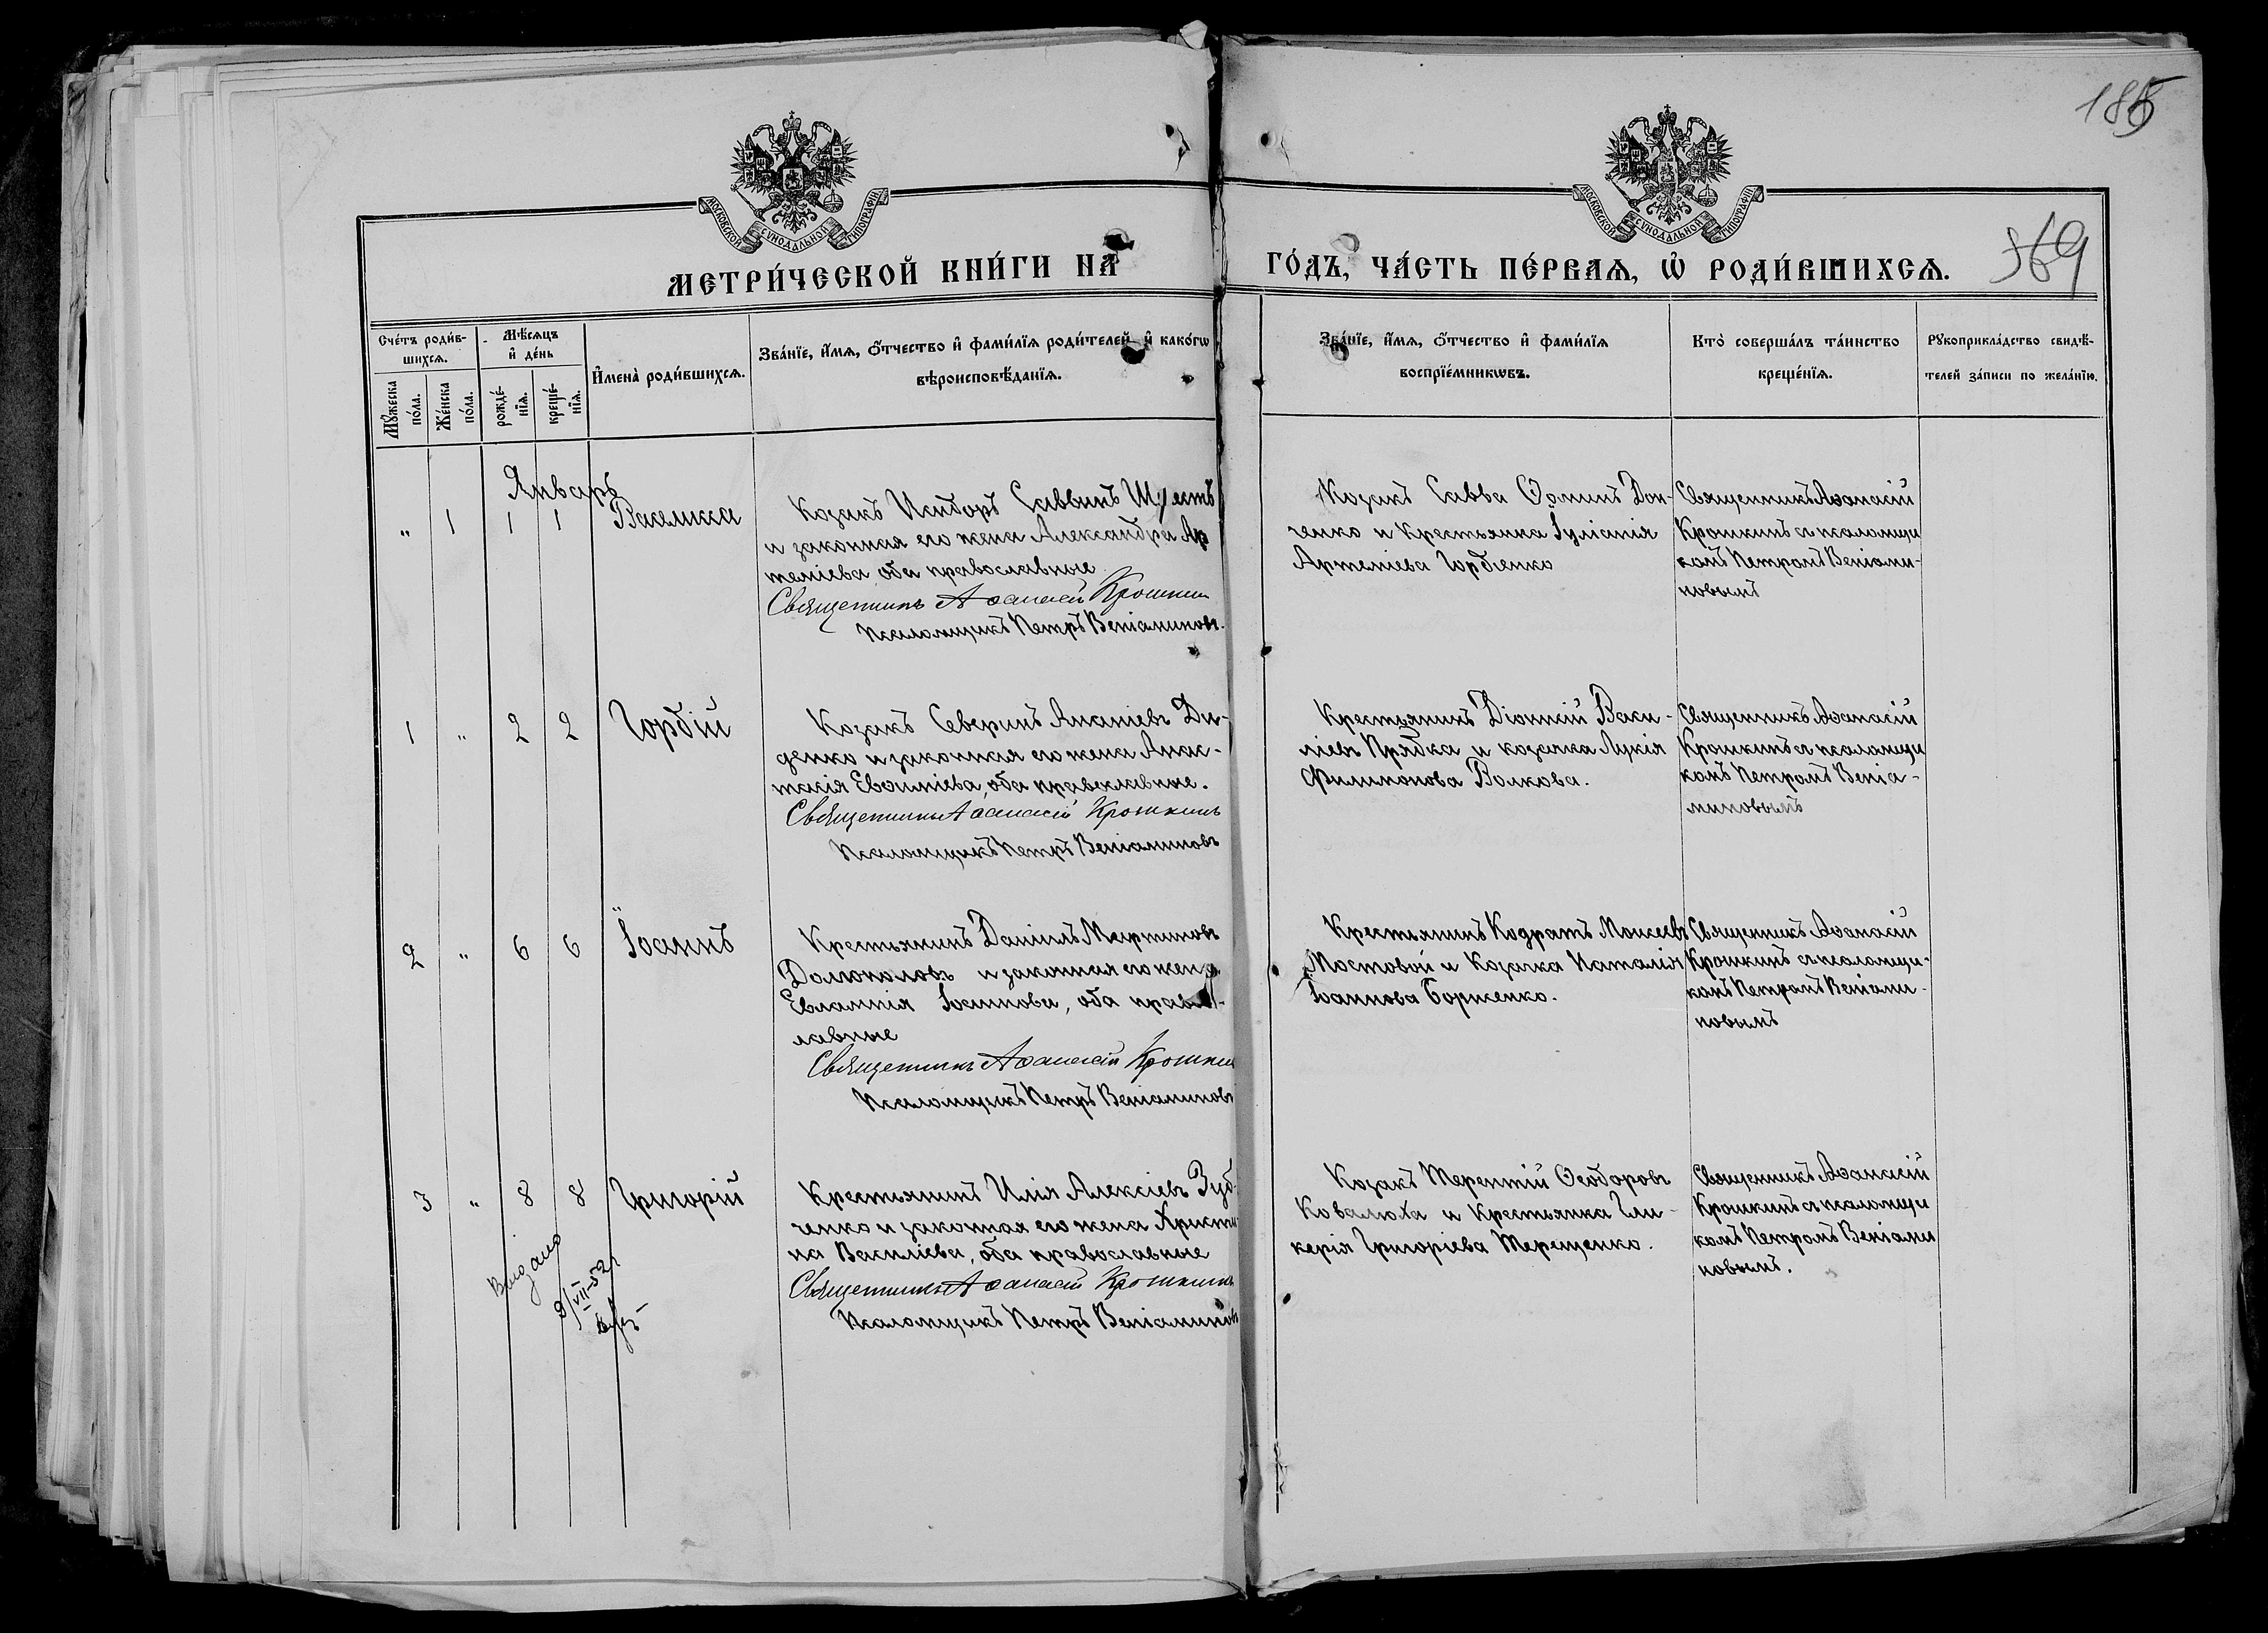 185
МОСКОВСКОЙ СѴНОДАЛЬНОЙ ТИПОГРАФІИ
МОСКОВСКОЙ СѴНОДАЛЬНОЙ ТИПОГРАФІИ
МЕТРИ́ЧЕСКОЙ КНИ́ГИ НА
ГО́ДЪ, ЧА́СТЬ ПЕ́РВАѦ, Ѡ҆ РОДИ́ВШИХСѦ.
369
Сче́тъ роди́в-
шихсѧ.
Мꙋ́жеска по́ла.
Же́нска по́ла.
Мѣ́сѧцъ
и҆ де́нь
рожде́-нїѧ.
креще́-нїѧ.
И҆мена̀ роди́вшихсѧ.
Зва́нїе, и҆́мѧ, ѻ҆́тчество и҆ фами́лїѧ роди́телей, и҆ како́гѡ
вѣроисповѣ́данїѧ.
Зва́нїе, и҆́мѧ, ѻ҆́тчество и҆ фами́лїѧ
воспрїе́мникѡвъ.
Кто̀ соверша́лъ та́инство
креще́нїѧ.
Рꙋкоприкла́дство свидѣ́-
телей за́писи по жела́нїю.
Январь
" 1 1 1 Василиса
Козакъ Исидоръ Саввинъ Шесть
и законная его жена Александра Ар
темiева оба православные
Священникъ Аѳанасiй Крошкинъ
Псаломщикъ Петръ Венiаминовъ.
Козакъ Савва Ѳоминъ Дон-
ченко и крестьянка Iулiанiя
Артемiева Гордiенко
Священникъ Аѳанасiй
Крошкинъ съ псаломщи
комъ Петромъ Венiами-
новымъ
1 " 2 2 Гордiй
Козакъ Северинъ Ананiевъ Ди-
денко и законная его жена Анас-
тасiя Евѳимiева, оба православные.
Священникъ Аѳанасiй Крошкинъ
Псаломщикъ Петръ Венiаминовъ
Крестьянинъ Дiонисiй Васи-
лiевъ Прядка и козачка Лукiя
Филимонова Волкова.
Священникъ Аѳанасiй
Крошкинъ съ псаломщи
комъ Петромъ Венiа-
миновымъ
2 " 6 6 Iоаннъ
Крестьянинъ Данiилъ Мартиновъ
Долгополовъ и законная его жена
Евлампiя Iоаннова, оба правос-
лавные
Священникъ Аѳанасiй Крошкин
Псаломщикъ Петръ Венiаминовъ
Крестьянинъ Кодратъ Моисеевъ
Мостовой и козачка Наталiя
Iоаннова Борженко.
Священникъ Аѳанасiй
Крошкинъ съ псаломщи-
комъ Петромъ Венiами-
новымъ
3 " 8 8 Григорiй
Крестьянинъ Илiя Алексiевъ Зуб-
ченко и законная его жена Христи
на Василiева, оба православные
Священникъ Аѳанасiй Крошкинъ
Псаломщикъ Петръ Венiаминовъ
Козакъ Терентiй Ѳеодоровъ
Ковалюха и крестьянка Гли-
керiя Григорiева Терещенко.
Священникъ Аѳанасiй
Крошкинъ съ псаломщи
комъ Петромъ Венiами
новымъ.
Видано
9/VII-52